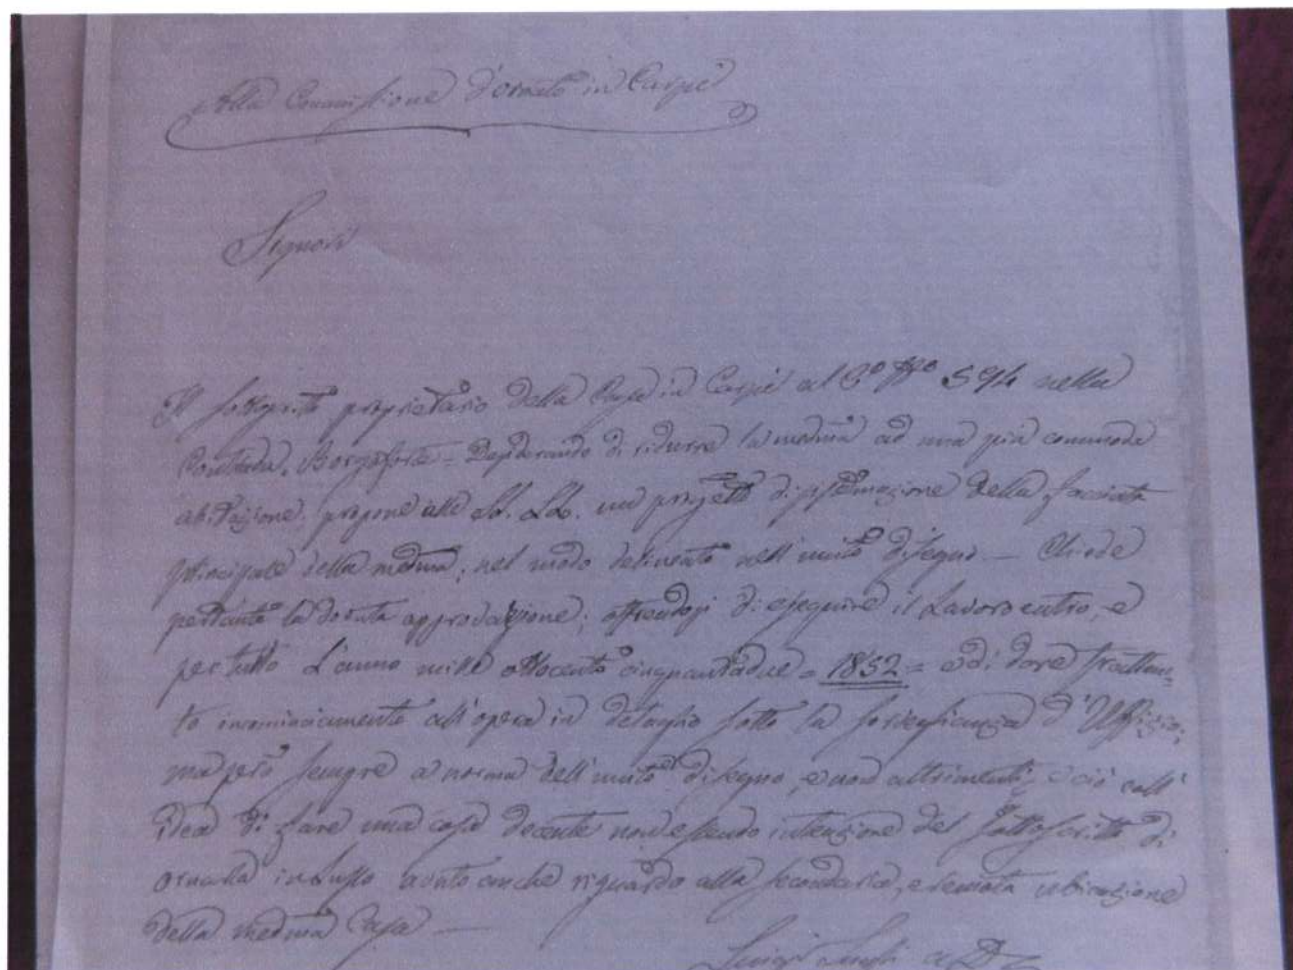 Alla Commissione d'ornato in Carpi
Signori
Il sottoscritto proprietario della Casa in Carpi al C.º Nº 594 nella
Contrada Borgoforte = Desiderando di ridurre la medma ad una più commoda
abitazione, propone alle SS. LL. un progetto di della facciata
principale della medma, nel modo delineato nell'unito disegno — Chiede
pertanto la dovuta approvazione; offrendosi di eseguire il Lavoro entro, e
per tutto L'anno mille ottocento cinquantadue = 1852 = e di dare frattan-
to incominciamento all'opera in detaglio sotto la d'Uffizio;
ma però sempre a norma dell'unito disegno, e non altrimenti, e ciò coll'
idea di fare una cosa decente non essendo intenzione del Sottoscritto di
ornarla in Lusso avuto anche riguardo alla secondaria, e remota ubicazione
della medma Casa —
Luigi